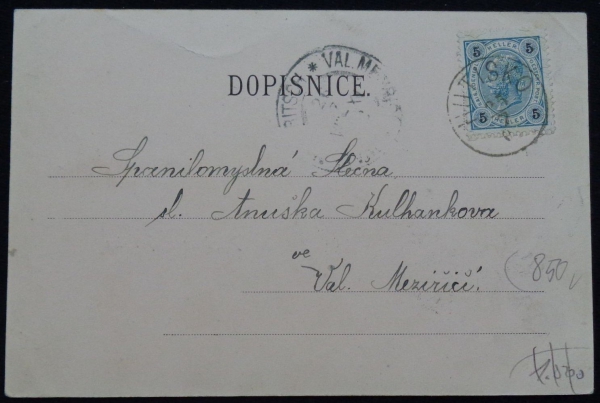 DOPISNICE.
* VAL. ME
5 HELLER 5
5 HELLER 5
Spanilomyslná Slečna
sl. Anuška Kulhankova
ve
Val. Meziříčí.
850